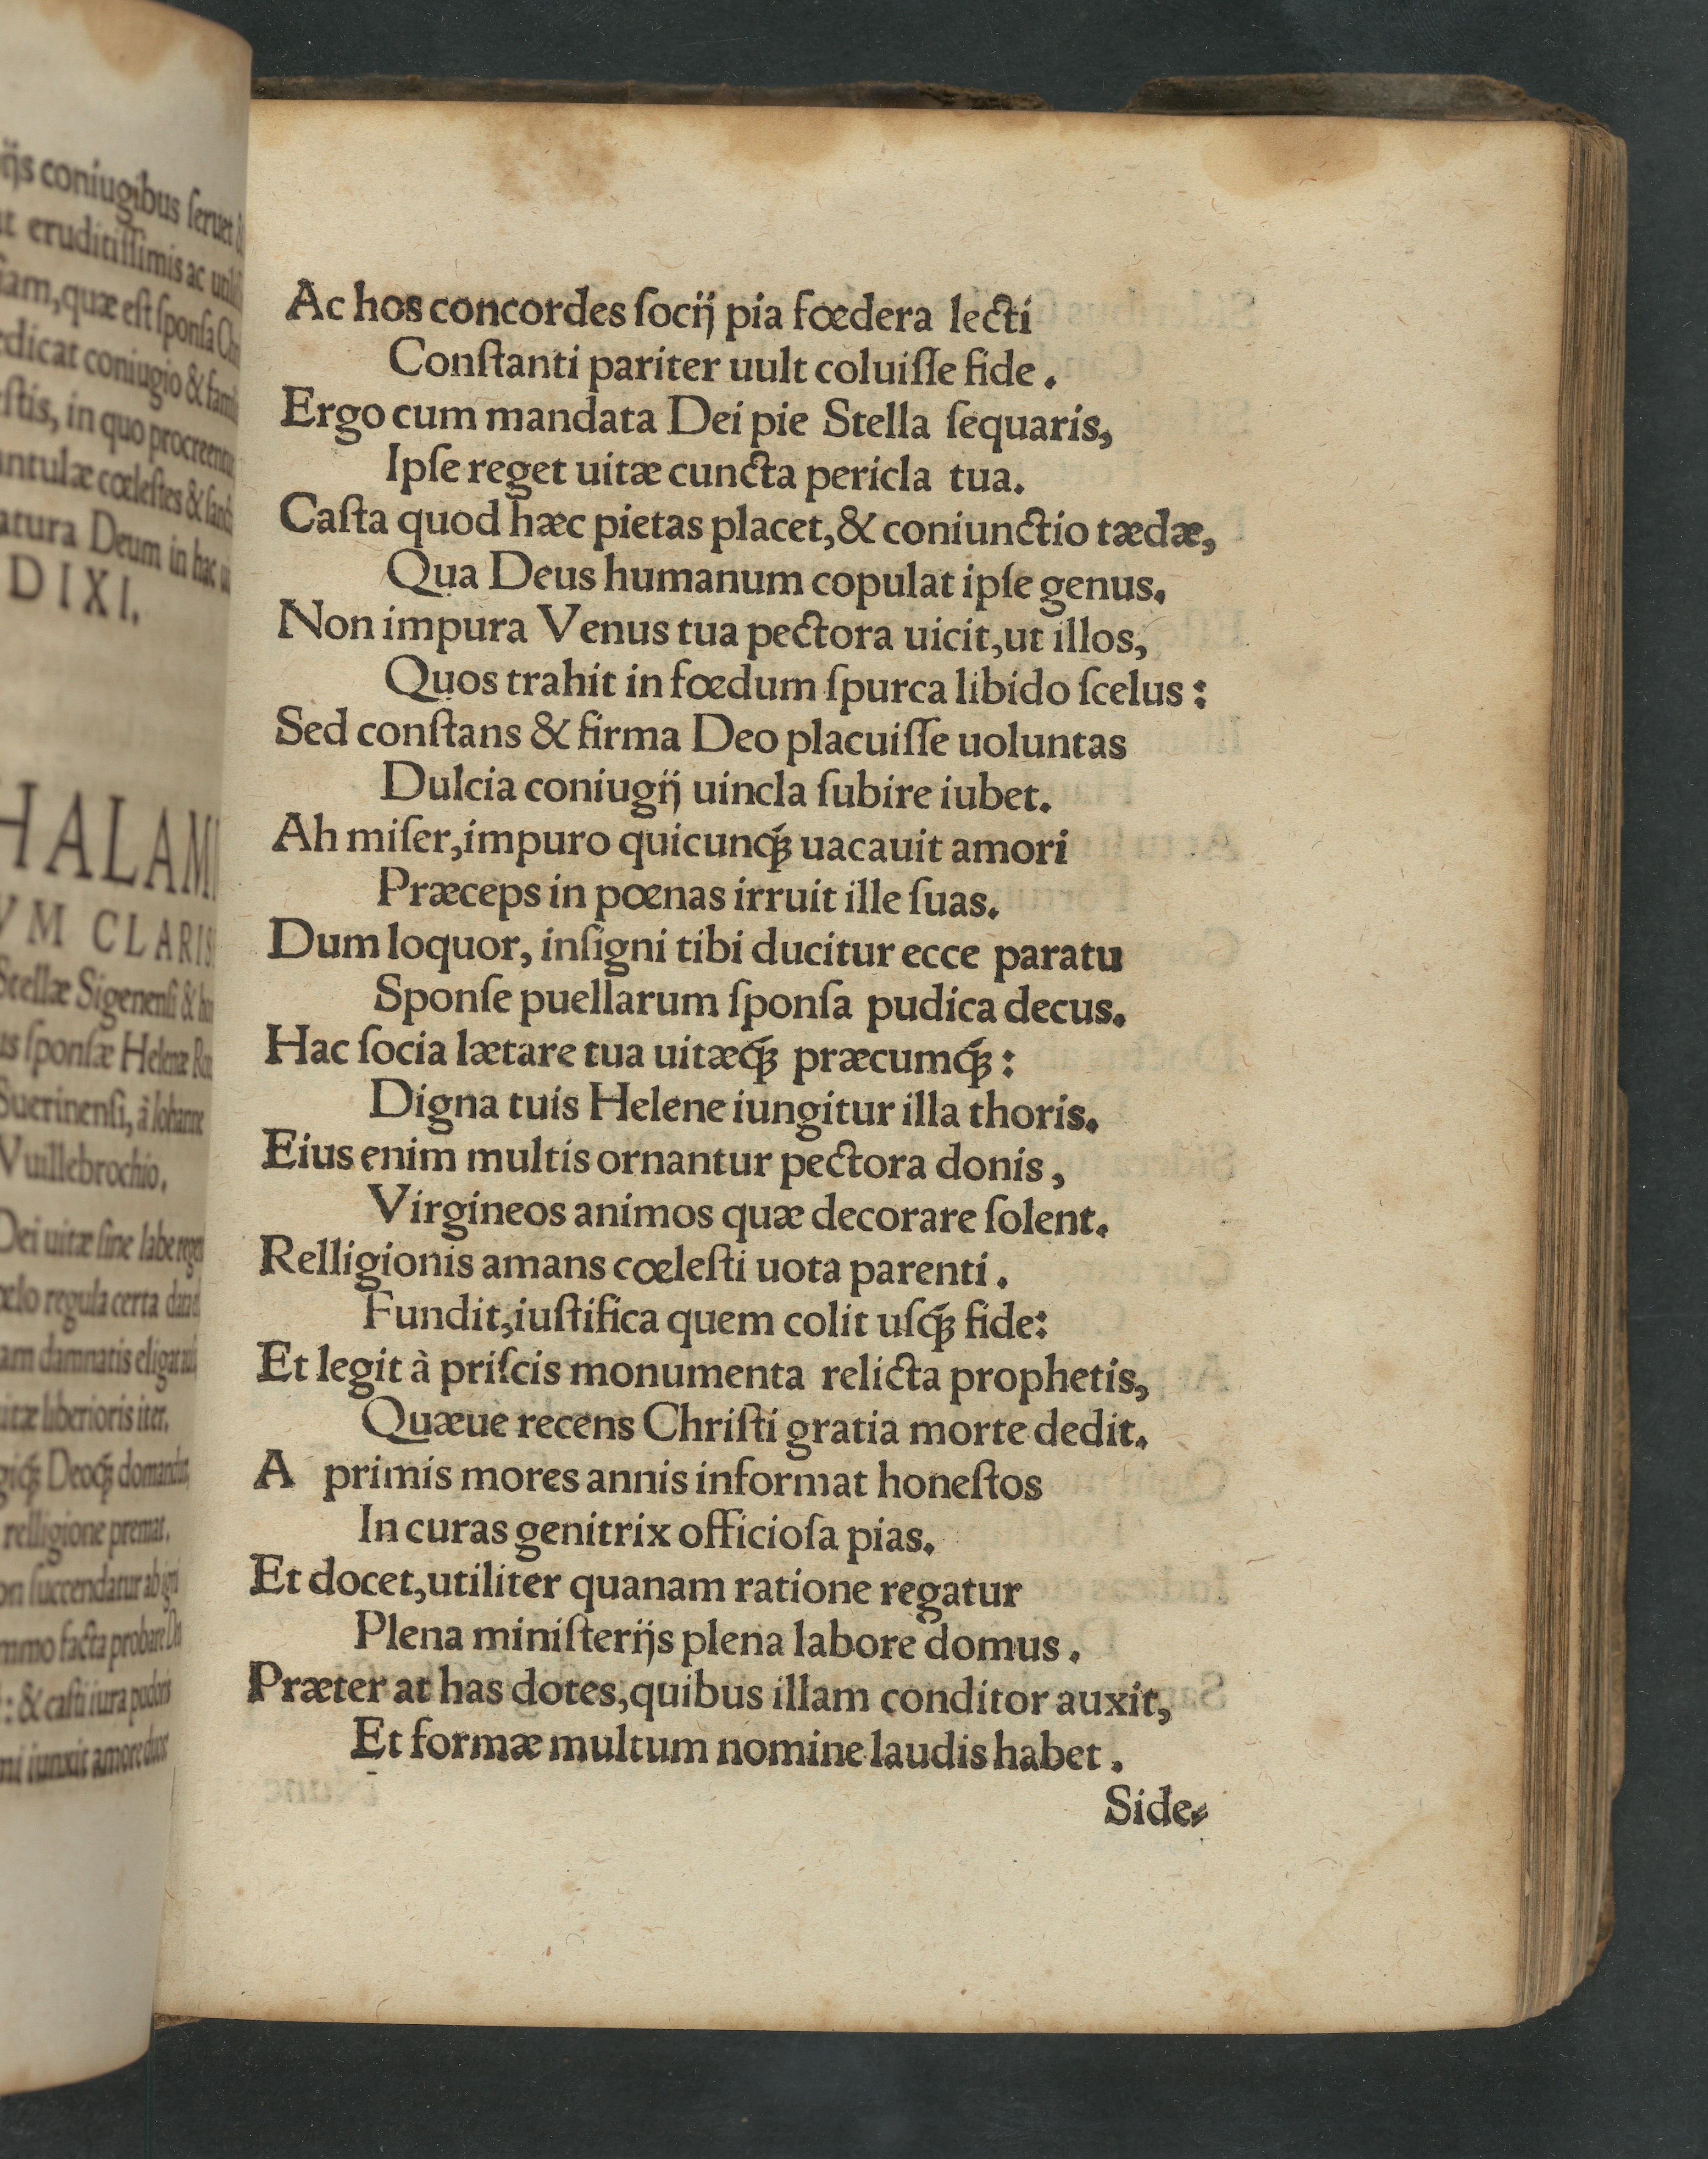 ijs coniugibus ſeruet &
eruditiſſimis ac
quæ eſt ſponſa
coniugio &
in quo
cœleſtes &
Deum in hac
DIXI.
HALAMI
VM CLARISS
Stellæ Sigenenſi &
ſponſæ Helenæ
Suerinenſi, à Iohanne
Vuillebrochio.
Dei uitæ ſine labe
regula certa
damnatis
liberioris iter.
Deoq́;
relligione premat.
ſuccendatur ab
facta probare
: & caſti iura pudoris
iunxit amore duos
Ac hos concordes ſocij pia fœdera lecti
Conſtanti pariter uult coluiſſe fide.
Ergo cum mandata Dei pie Stella ſequaris,
Ipſe reget uitæ cuncta pericla tua.
Caſta quod hæc pietas placet, & coniunctio tædæ,
Qua Deus humanum copulat ipſe genus.
Non impura Venus tua pectora uicit, ut illos,
Quos trahit in fœdum ſpurca libido ſcelus:
Sed conſtans & firma Deo placuiſſe uoluntas
Dulcia coniugij uincla ſubire iubet.
Ah miſer, impuro quicunq́; uacauit amori
Præceps in pœnas irruit ille ſuas.
Dum loquor, inſigni tibi ducitur ecce paratu
Sponſe puellarum ſponſa pudica decus.
Hac ſocia lætare tua uitæq́; præcumq́;:
Digna tuis Helene iungitur illa thoris.
Eius enim multis ornantur pectora donis,
Virgineos animos quæ decorare ſolent.
Relligionis amans cœleſti uota parenti.
Fundit, iuſtifica quem colit uſq́; fide:
Et legit à priſcis monumenta relicta prophetis,
Quæue recens Chriſti gratia morte dedit.
A primis mores annis informat honeſtos
In curas genitrix officioſa pias.
Et docet, utiliter quanam ratione regatur
Plena miniſterijs plena labore domus.
Præter at has dotes, quibus illam conditor auxit,
Et formæ multum nomine laudis habet.
Side-